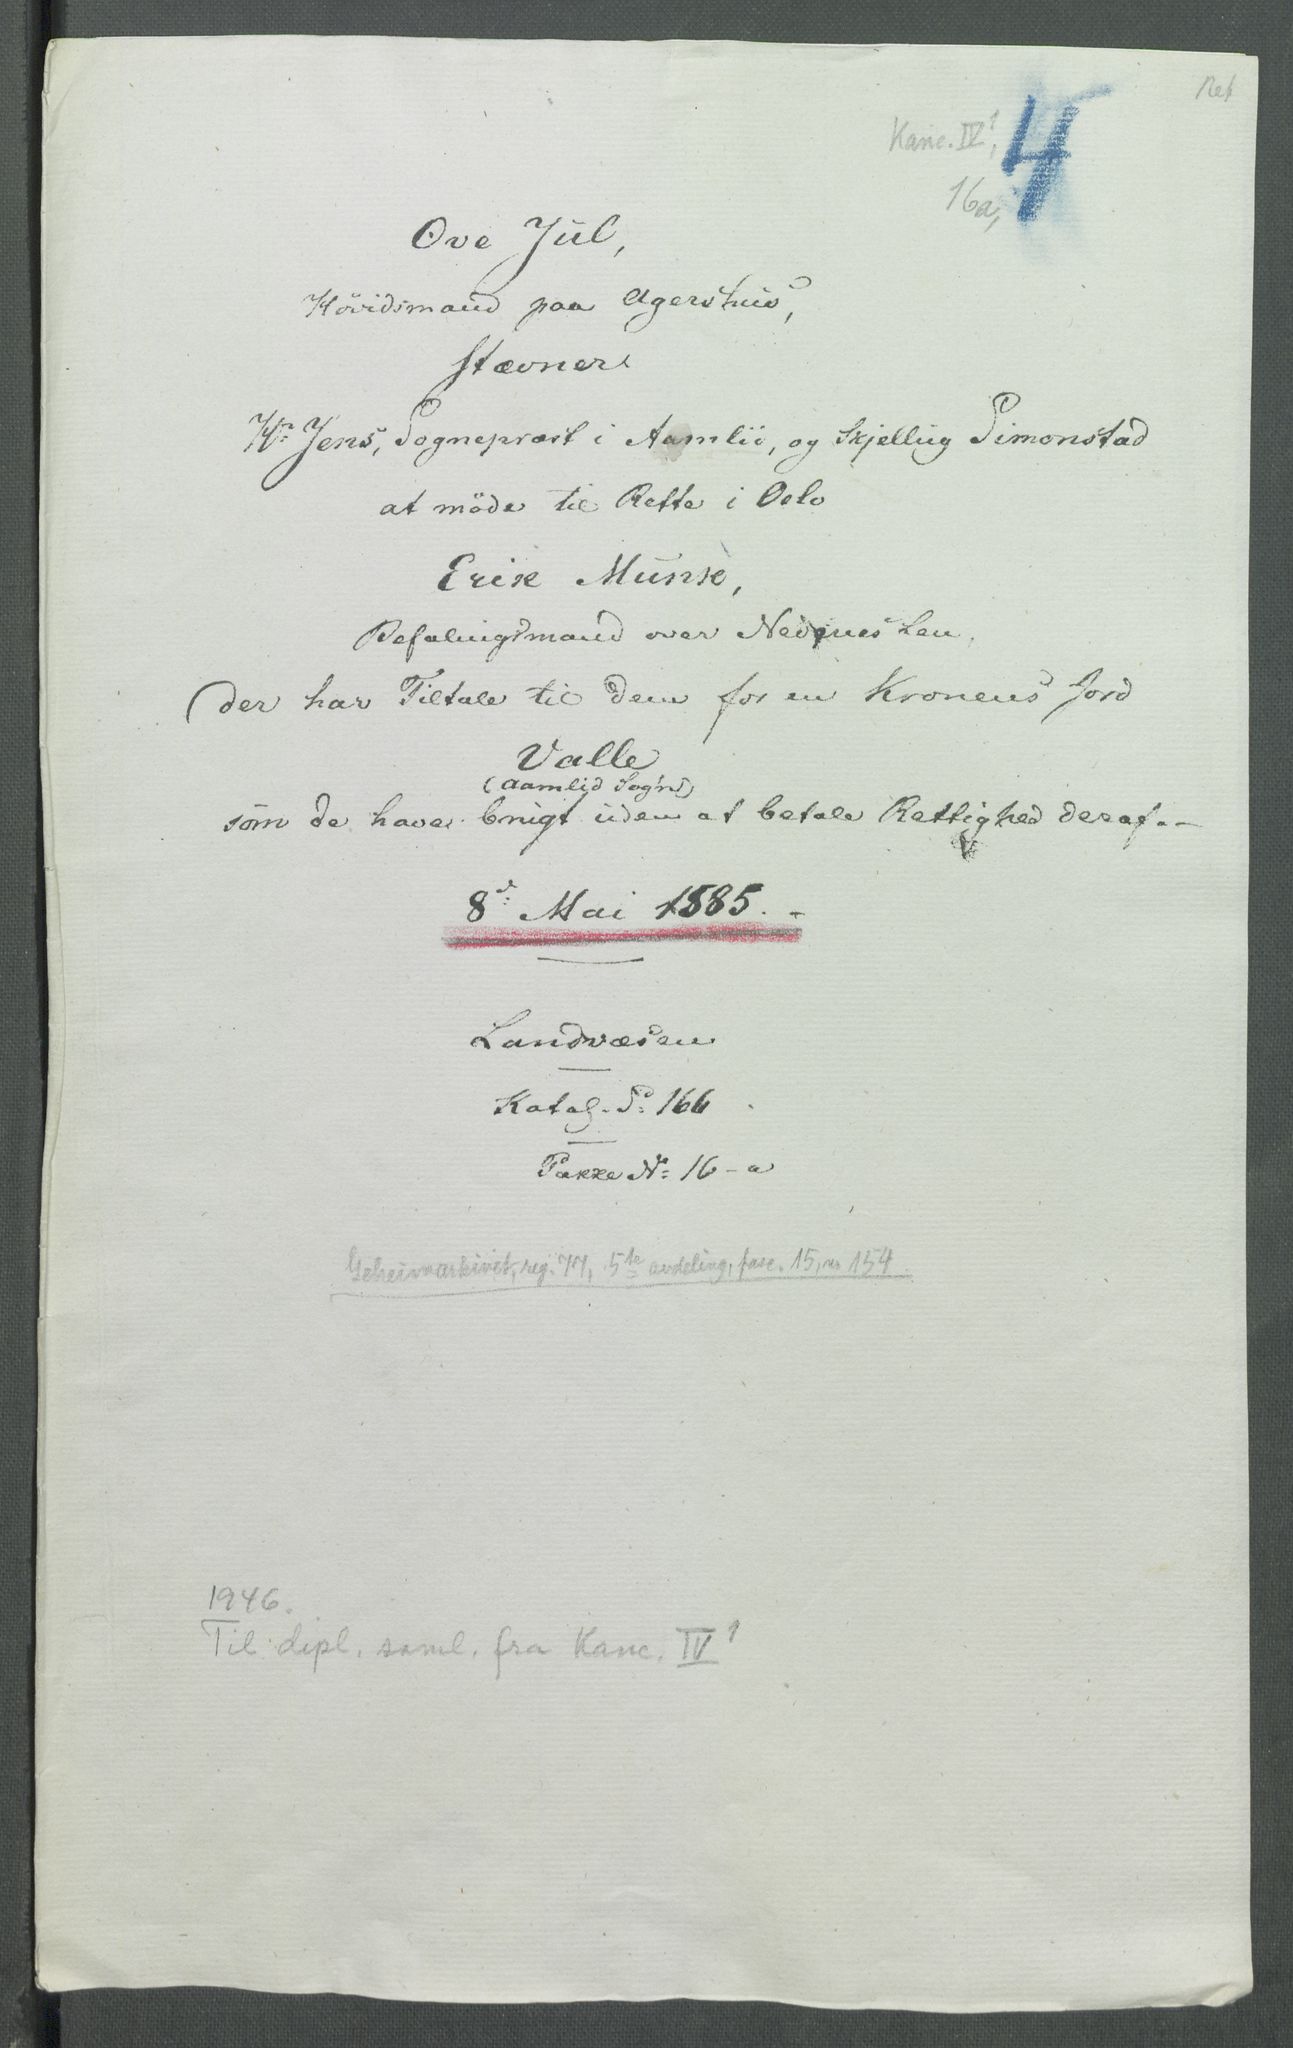 Ret
Kanc. IV¹,
4
16a,
Ove Jül,
Hövidsmand paa Agershuus,
stævner
Hr Jens, Sognepræst i Aamlii, og Skjellug Simonstad
at möde til Rette i Oslo
Erik Munk,
Befalingsmand over Nedenes Len,
der har Tiltale til dem for en Kronens Jord
Valle
(Aamlid Sogn)
som de have brugt uden at betale Rettighed deraf.-
8d Mai 1585.-
Landvæsen
Katal. P: 166
Pakke N: 16-a
Geheimearkivet, reg. 77, 5te avdeling, fasc. 15, nr 154
1946.
Til dipl. saml. fra Kanc. IV¹